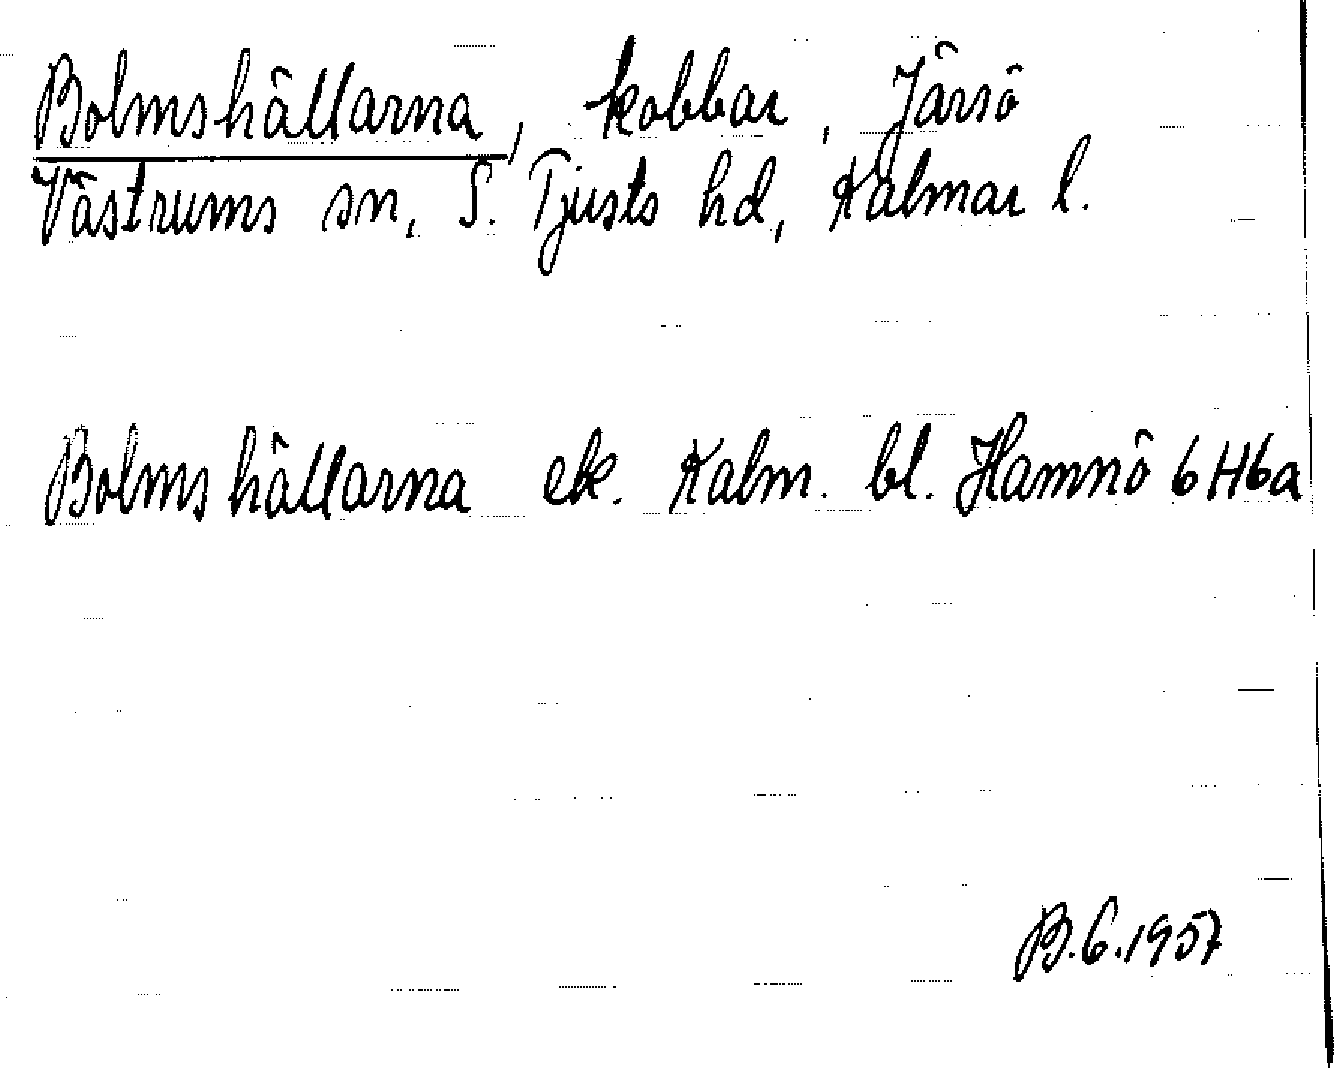 Bolmshällarna, kobbar, Järsö
Västrums sn, S. Tjusts hd, Kalmar l.
Bolmshällarna ek. Kalm. bl. Hamnö 6H6a
B.G.1957